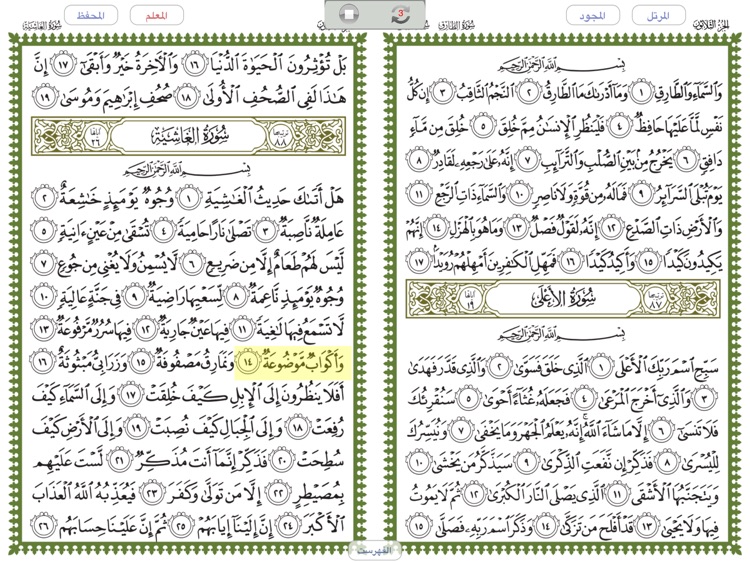 الجزء الثلاثون
المرتل
المجود
سورة الطارق
3
المعلم
المحفظ
سورة الغاشية
بِسْمِ اللَّهِ الرَّحْمَٰنِ الرَّحِيمِ
وَالسَّمَاءِ وَالطَّارِقِ ١ وَمَا أَدْرَىٰكَ مَا الطَّارِقُ ٢ النَّجْمُ الثَّاقِبُ ٣ إِن كُلُّ
نَفْسٍ لَّمَّا عَلَيْهَا حَافِظٌ ٤ فَلْيَنظُرِ الْإِنسَٰنُ مِمَّ خُلِقَ ٥ خُلِقَ مِن مَّاءٍ
دَافِقٍ ٦ يَخْرُجُ مِن بَيْنِ الصُّلْبِ وَالتَّرَائِبِ ٧ إِنَّهُ عَلَىٰ رَجْعِهِ لَقَادِرٌ ٨
يَوْمَ تُبْلَى السَّرَائِرُ ٩ فَمَا لَهُ مِن قُوَّةٍ وَلَا نَاصِرٍ ١٠ وَالسَّمَاءِ ذَاتِ الرَّجْعِ ١١
وَالْأَرْضِ ذَاتِ الصَّدْعِ ١٢ إِنَّهُ لَقَوْلٌ فَصْلٌ ١٣ وَمَا هُوَ بِالْهَزْلِ ١٤ إِنَّهُمْ
يَكِيدُونَ كَيْدًا ١٥ وَأَكِيدُ كَيْدًا ١٦ فَمَهِّلِ الْكَٰفِرِينَ أَمْهِلْهُمْ رُوَيْدًا ١٧
ترتيبها ٨٧ سُورَةُ الْأَعْلَىٰ آياتها ١٩
بِسْمِ اللَّهِ الرَّحْمَٰنِ الرَّحِيمِ
سَبِّحِ اسْمَ رَبِّكَ الْأَعْلَى ١ الَّذِي خَلَقَ فَسَوَّىٰ ٢ وَالَّذِي قَدَّرَ فَهَدَىٰ
٣ وَالَّذِي أَخْرَجَ الْمَرْعَىٰ ٤ فَجَعَلَهُ غُثَاءً أَحْوَىٰ ٥ سَنُقْرِئُكَ
فَلَا تَنسَىٰ ٦ إِلَّا مَا شَاءَ اللَّهُ إِنَّهُ يَعْلَمُ الْجَهْرَ وَمَا يَخْفَىٰ ٧ وَنُيَسِّرُكَ
لِلْيُسْرَىٰ ٨ فَذَكِّرْ إِن نَّفَعَتِ الذِّكْرَىٰ ٩ سَيَذَّكَّرُ مَن يَخْشَىٰ ١٠
وَيَتَجَنَّبُهَا الْأَشْقَى ١١ الَّذِي يَصْلَى النَّارَ الْكُبْرَىٰ ١٢ ثُمَّ لَا يَمُوتُ
فِيهَا وَلَا يَحْيَىٰ ١٣ قَدْ أَفْلَحَ مَن تَزَكَّىٰ ١٤ وَذَكَرَ اسْمَ رَبِّهِ فَصَلَّىٰ ١٥
بَلْ تُؤْثِرُونَ الْحَيَوٰةَ الدُّنْيَا ١٦ وَالْآخِرَةُ خَيْرٌ وَأَبْقَىٰ ١٧ إِنَّ
هَٰذَا لَفِي الصُّحُفِ الْأُولَىٰ ١٨ صُحُفِ إِبْرَٰهِيمَ وَمُوسَىٰ ١٩
ترتيبها ٨٨ سُورَةُ الْغَاشِيَةِ آياتها ٢٦
بِسْمِ اللَّهِ الرَّحْمَٰنِ الرَّحِيمِ
هَلْ أَتَىٰكَ حَدِيثُ الْغَٰشِيَةِ ١ وُجُوهٌ يَوْمَئِذٍ خَٰشِعَةٌ ٢
عَامِلَةٌ نَّاصِبَةٌ ٣ تَصْلَىٰ نَارًا حَامِيَةً ٤ تُسْقَىٰ مِنْ عَيْنٍ ءَانِيَةٍ ٥
لَّيْسَ لَهُمْ طَعَامٌ إِلَّا مِن ضَرِيعٍ ٦ لَّا يُسْمِنُ وَلَا يُغْنِي مِن جُوعٍ ٧
وُجُوهٌ يَوْمَئِذٍ نَّاعِمَةٌ ٨ لِّسَعْيِهَا رَاضِيَةٌ ٩ فِي جَنَّةٍ عَالِيَةٍ ١٠
لَّا تَسْمَعُ فِيهَا لَٰغِيَةً ١١ فِيهَا عَيْنٌ جَارِيَةٌ ١٢ فِيهَا سُرُرٌ مَّرْفُوعَةٌ ١٣
وَأَكْوَابٌ مَّوْضُوعَةٌ ١٤ وَنَمَارِقُ مَصْفُوفَةٌ ١٥ وَزَرَابِيُّ مَبْثُوثَةٌ ١٦
أَفَلَا يَنظُرُونَ إِلَى الْإِبِلِ كَيْفَ خُلِقَتْ ١٧ وَإِلَى السَّمَاءِ كَيْفَ
رُفِعَتْ ١٨ وَإِلَى الْجِبَالِ كَيْفَ نُصِبَتْ ١٩ وَإِلَى الْأَرْضِ كَيْفَ
سُطِحَتْ ٢٠ فَذَكِّرْ إِنَّمَا أَنتَ مُذَكِّرٌ ٢١ لَّسْتَ عَلَيْهِم
بِمُصَيْطِرٍ ٢٢ إِلَّا مَن تَوَلَّىٰ وَكَفَرَ ٢٣ فَيُعَذِّبُهُ اللَّهُ الْعَذَابَ
الْأَكْبَرَ ٢٤ إِنَّ إِلَيْنَا إِيَابَهُمْ ٢٥ ثُمَّ إِنَّ عَلَيْنَا حِسَابَهُم ٢٦
الفهرست